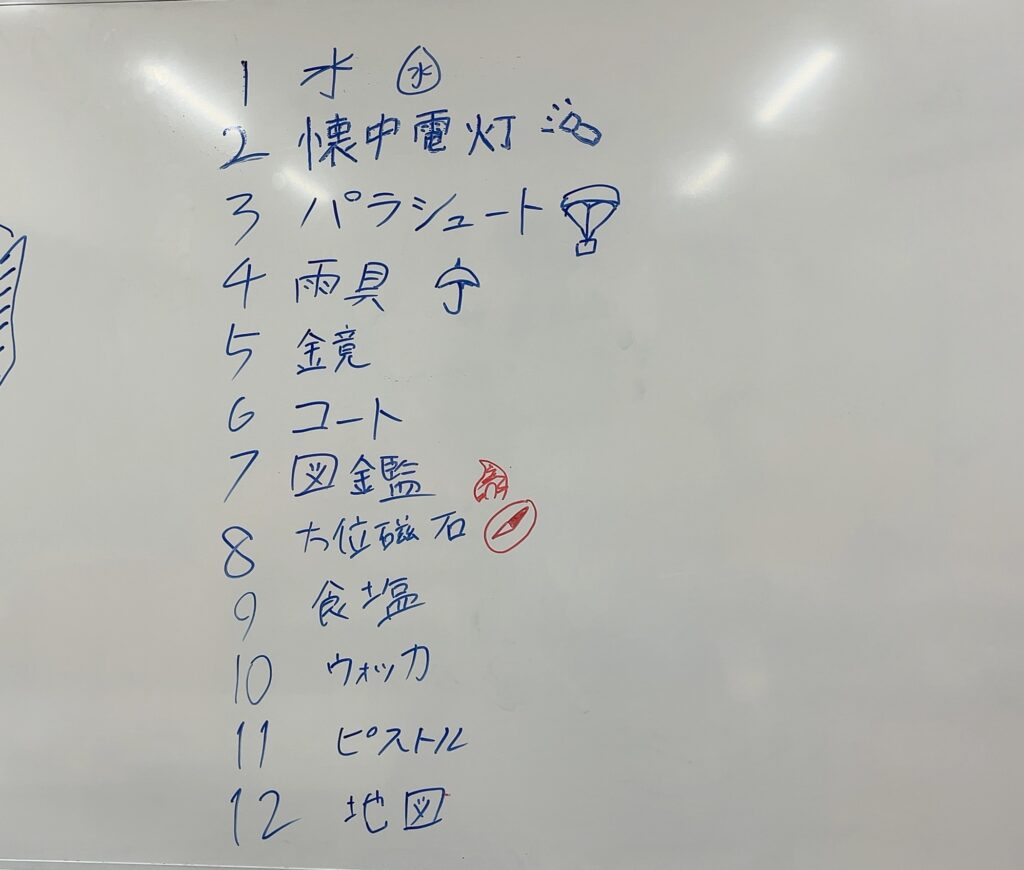 1 水 水
2 懐中電灯
3 パラシュート
4 雨具
5 鏡
6 コート
7 図鑑
8 方位磁石
9 食塩
10 ウォッカ
11 ピストル
12 地図